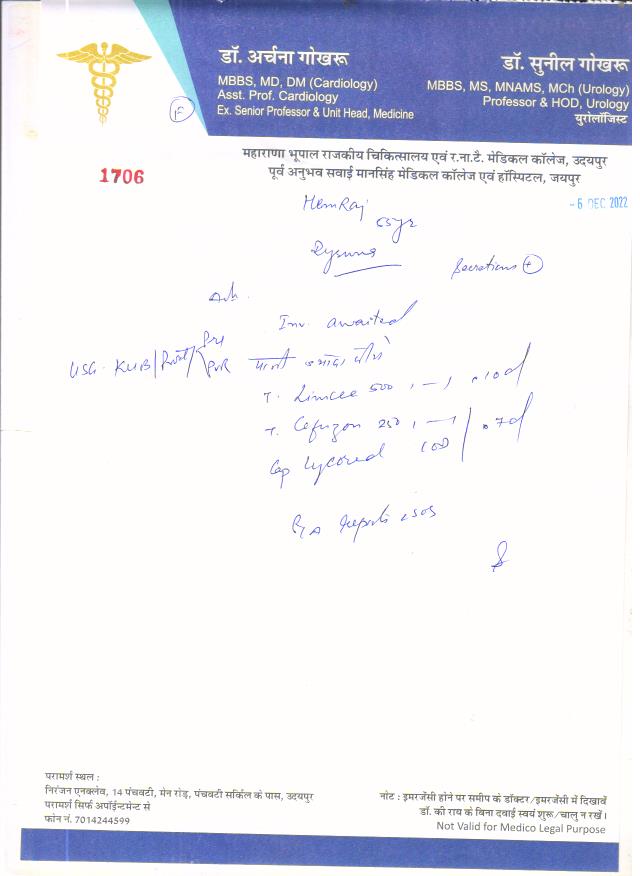 डॉ. अर्चना गोखरू
MBBS, MD, DM (Cardiology)
Asst. Prof. Cardiology
Ex. Senior Professor & Unit Head, Medicine
डॉ. सुनील गोखरू
MBBS, MS, MNAMS, MCh (Urology)
Professor & HOD, Urology
युरोलॉजिस्ट
F
महाराणा भूपाल राजकीय चिकित्सालय एवं र.ना.टै. मेडिकल कॉलेज, उदयपुर
पूर्व अनुभव सवाई मानसिंह मेडिकल कॉलेज एवं हॉस्पिटल, जयपुर
1706
- 6 DEC 2022
HemRaj
55yr
Secretions +
Inv. awaited
USG. KUB/Prost/Pre
PVR पानी ज्यादा पीये
T. Limcee 500 1—1 . 10d
T. Cefuzon 250 1—1 . 7d
Cap Lycored 1OD
Reports
SOS
परामर्श स्थल :
निरंजन एनक्लेव, 14 पंचवटी, मेन रोड़, पंचवटी सर्किल के पास, उदयपुर
परामर्श सिर्फ अपॉईन्टमेन्ट से
फोन नं. 7014244599
नोट : इमरजेंसी होने पर समीप के डॉक्टर/इमरजेंसी में दिखावें
डॉ. की राय के बिना दवाई स्वयं शुरू/चालु न रखें।
Not Valid for Medico Legal Purpose